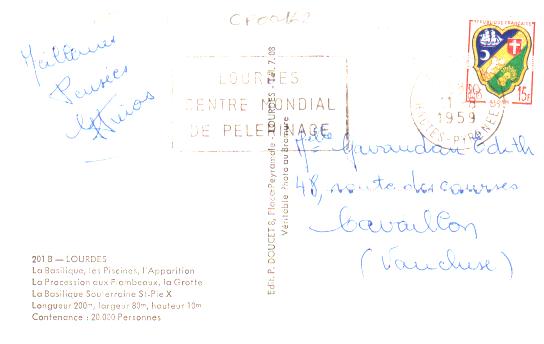 Meilleures
Pensées
LOURDES
CENTRE MONDIAL
DE PELERINAGE
REPUBLIQUE FRANCAISE
15F
1959
HAUTES-PYRENEES
Edit. P. DOUCET 8, Place Peyramale - LOURDES - Tél. 7.08
Véritable Photo au Bromure
Melle Gavaudan Edith
48, route des courses
Cavaillon
(Vaucluse)
201 B — LOURDES
La Basilique, les Piscines, l'Apparition
La Procession aux Flambeaux, la Grotte
La Basilique Souterraine St-Pie X
Longueur 200m, largeur 80m, hauteur 10m
Contenance : 20.000 Personnes